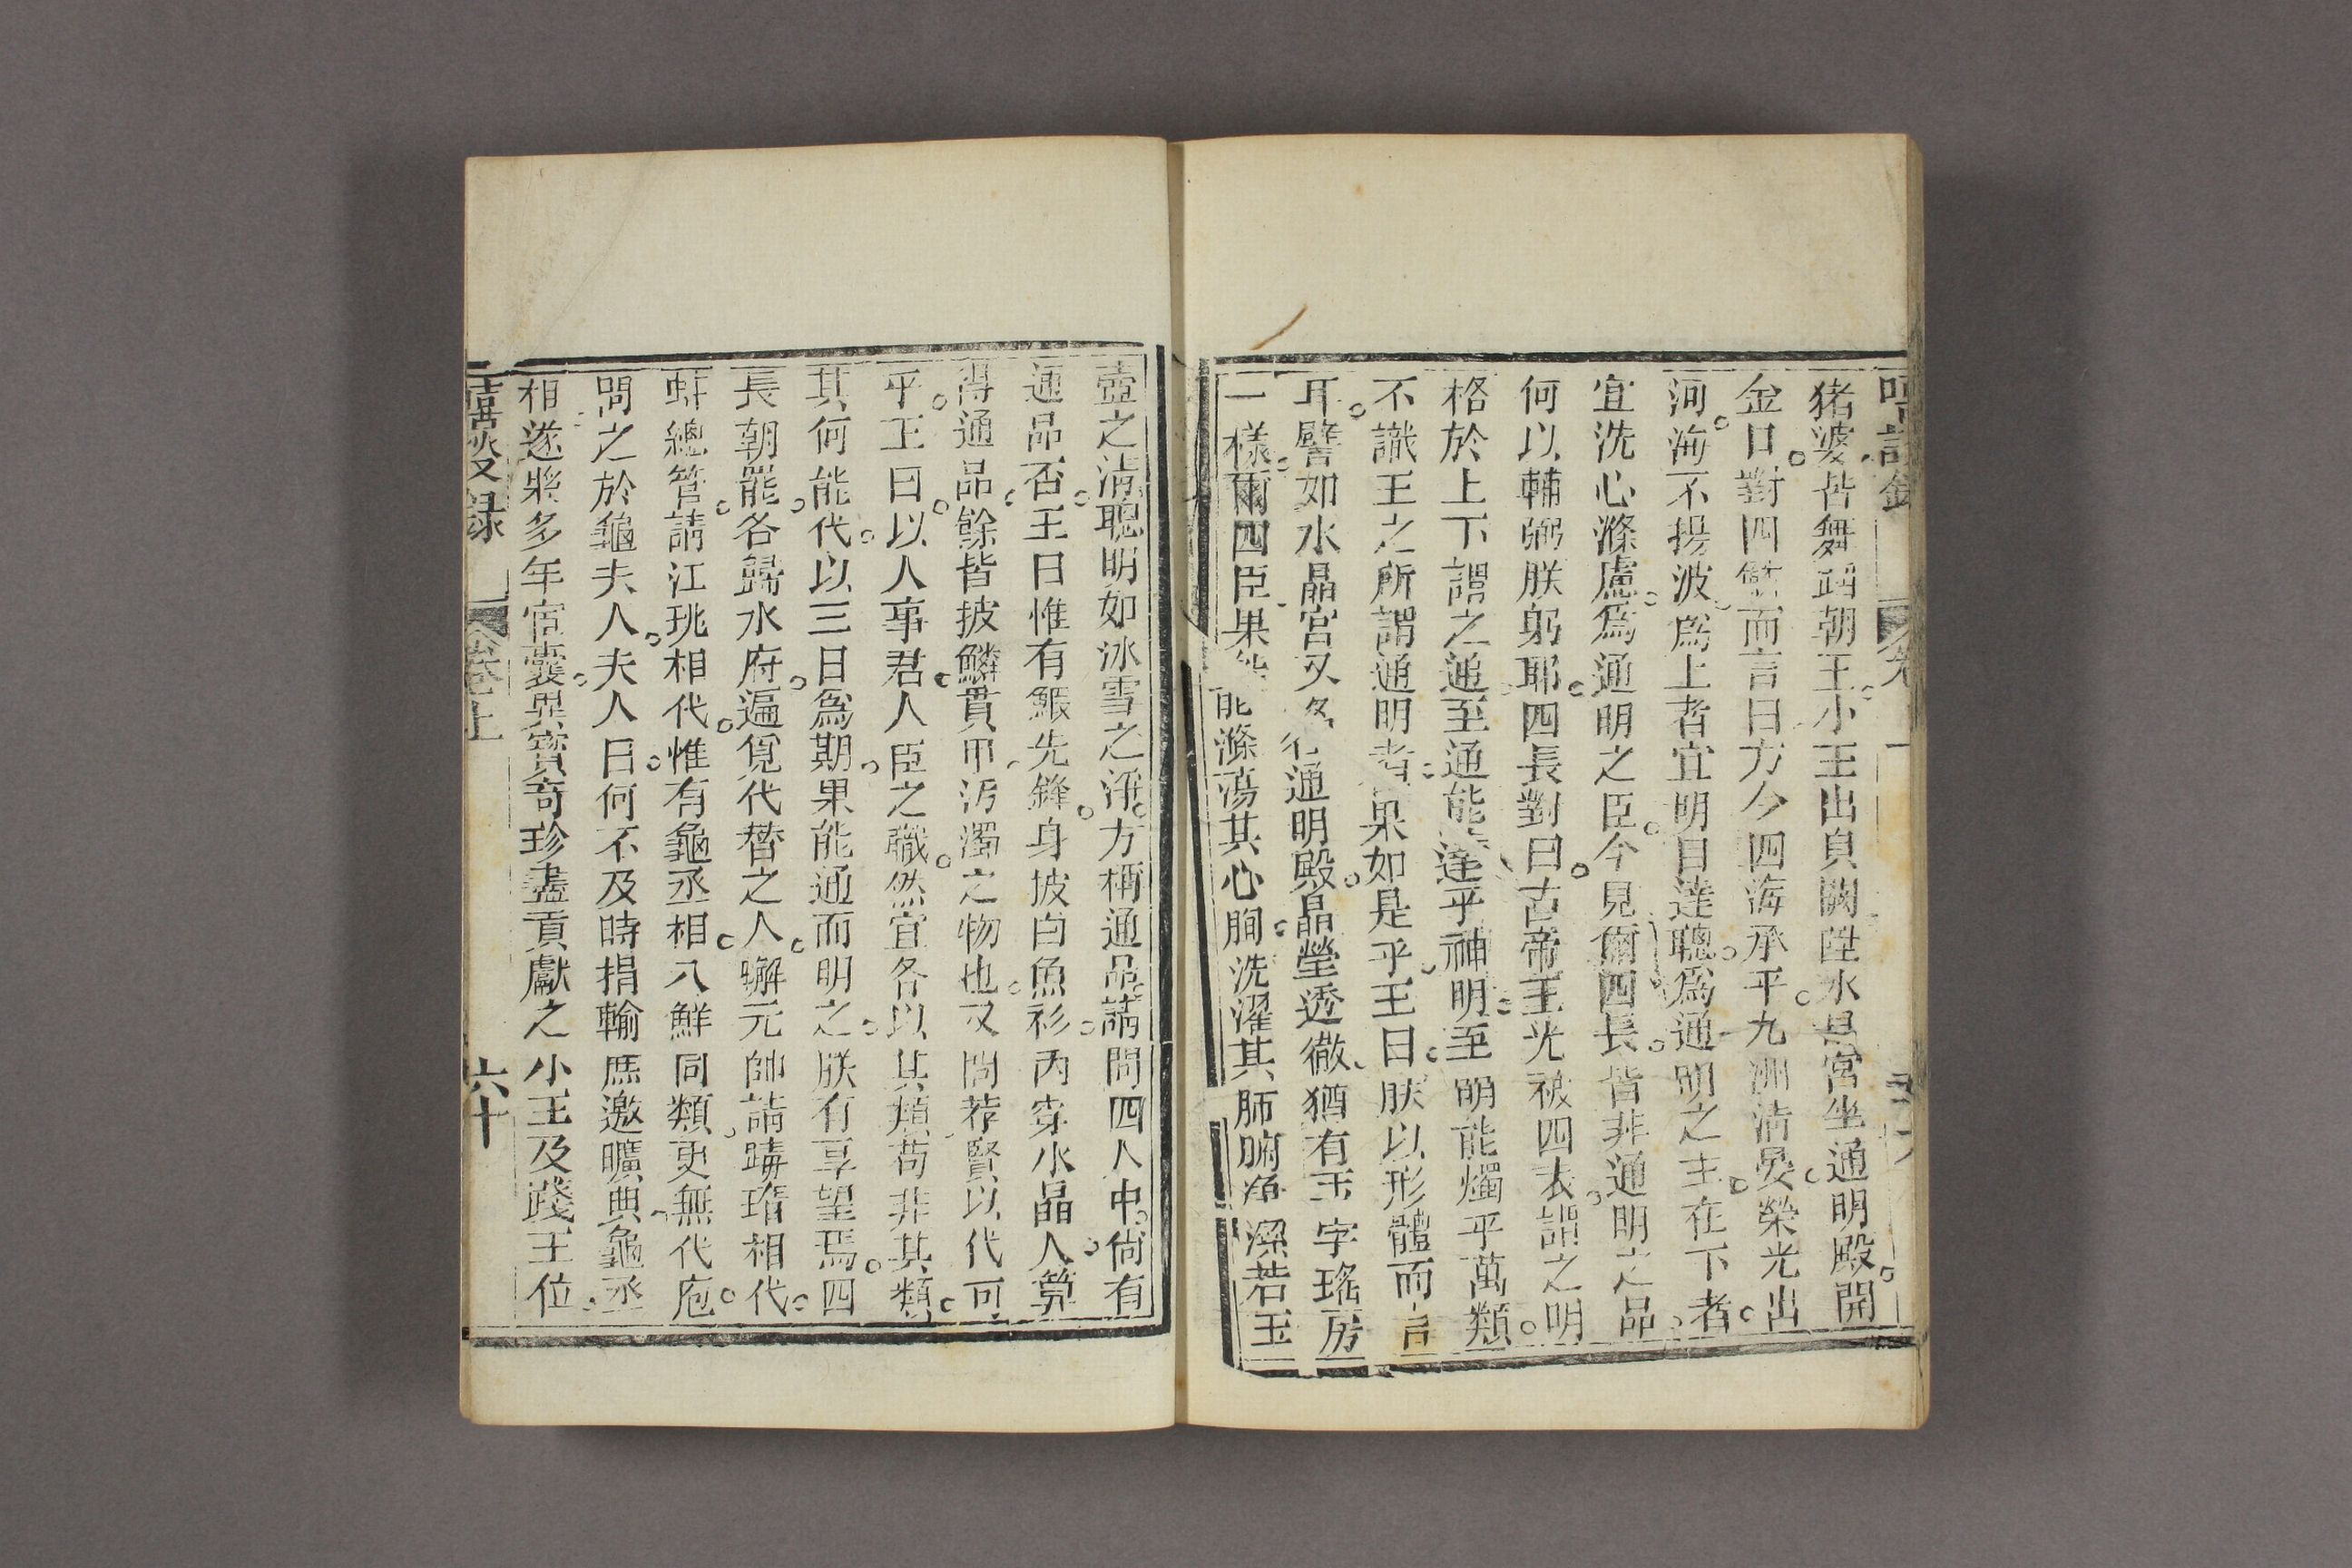 猪婆皆舞蹈朝王小王出貝闕陞水晶宮坐通明殿開
金口對四 而言曰方今四海承平九洲清晏榮光出
河海不揚波爲上者宜明目達聰爲通明之主在下者
宜洗心滌慮爲通明之臣今見爾四長皆非通明之品
何以輔弼朕躬耶四長對曰古帝王光被四表謂之明
格於上下謂之通至通能達乎神明至明能燭乎萬類
不識王之所謂通明者果如是乎王曰朕以形體而言
耳譬如水晶宮又名通明殿晶瑩透徹猶有玉字瑤房
一樣爾四臣果能滌蕩其心胸洗濯其肺腑 深若玉
壺之清聰明如冰雪之淨方稱通品請問四人中尙有
通品否王曰惟有鰕先鋒身披白魚衫內穿水晶人算
得通品餘皆披鱗貫甲汚濁之物也又問荐賢以代可
乎王曰以人事君人臣之職然宜各以其類苟非其類
其何能代以三日爲期果能通而明之朕有享望焉四
長朝罷各歸水府遍覓代替之人蠏元帥請 瑁相代
蚌總管請江珧相代惟有龜丞相八鮮同類更無代庖
問之於龜夫人夫人曰何不及時捐輸庶邀曠典龜丞
相遂將多年宦囊異寶奇珍盡貢獻之小王及踐王位
錄 卷上 六十